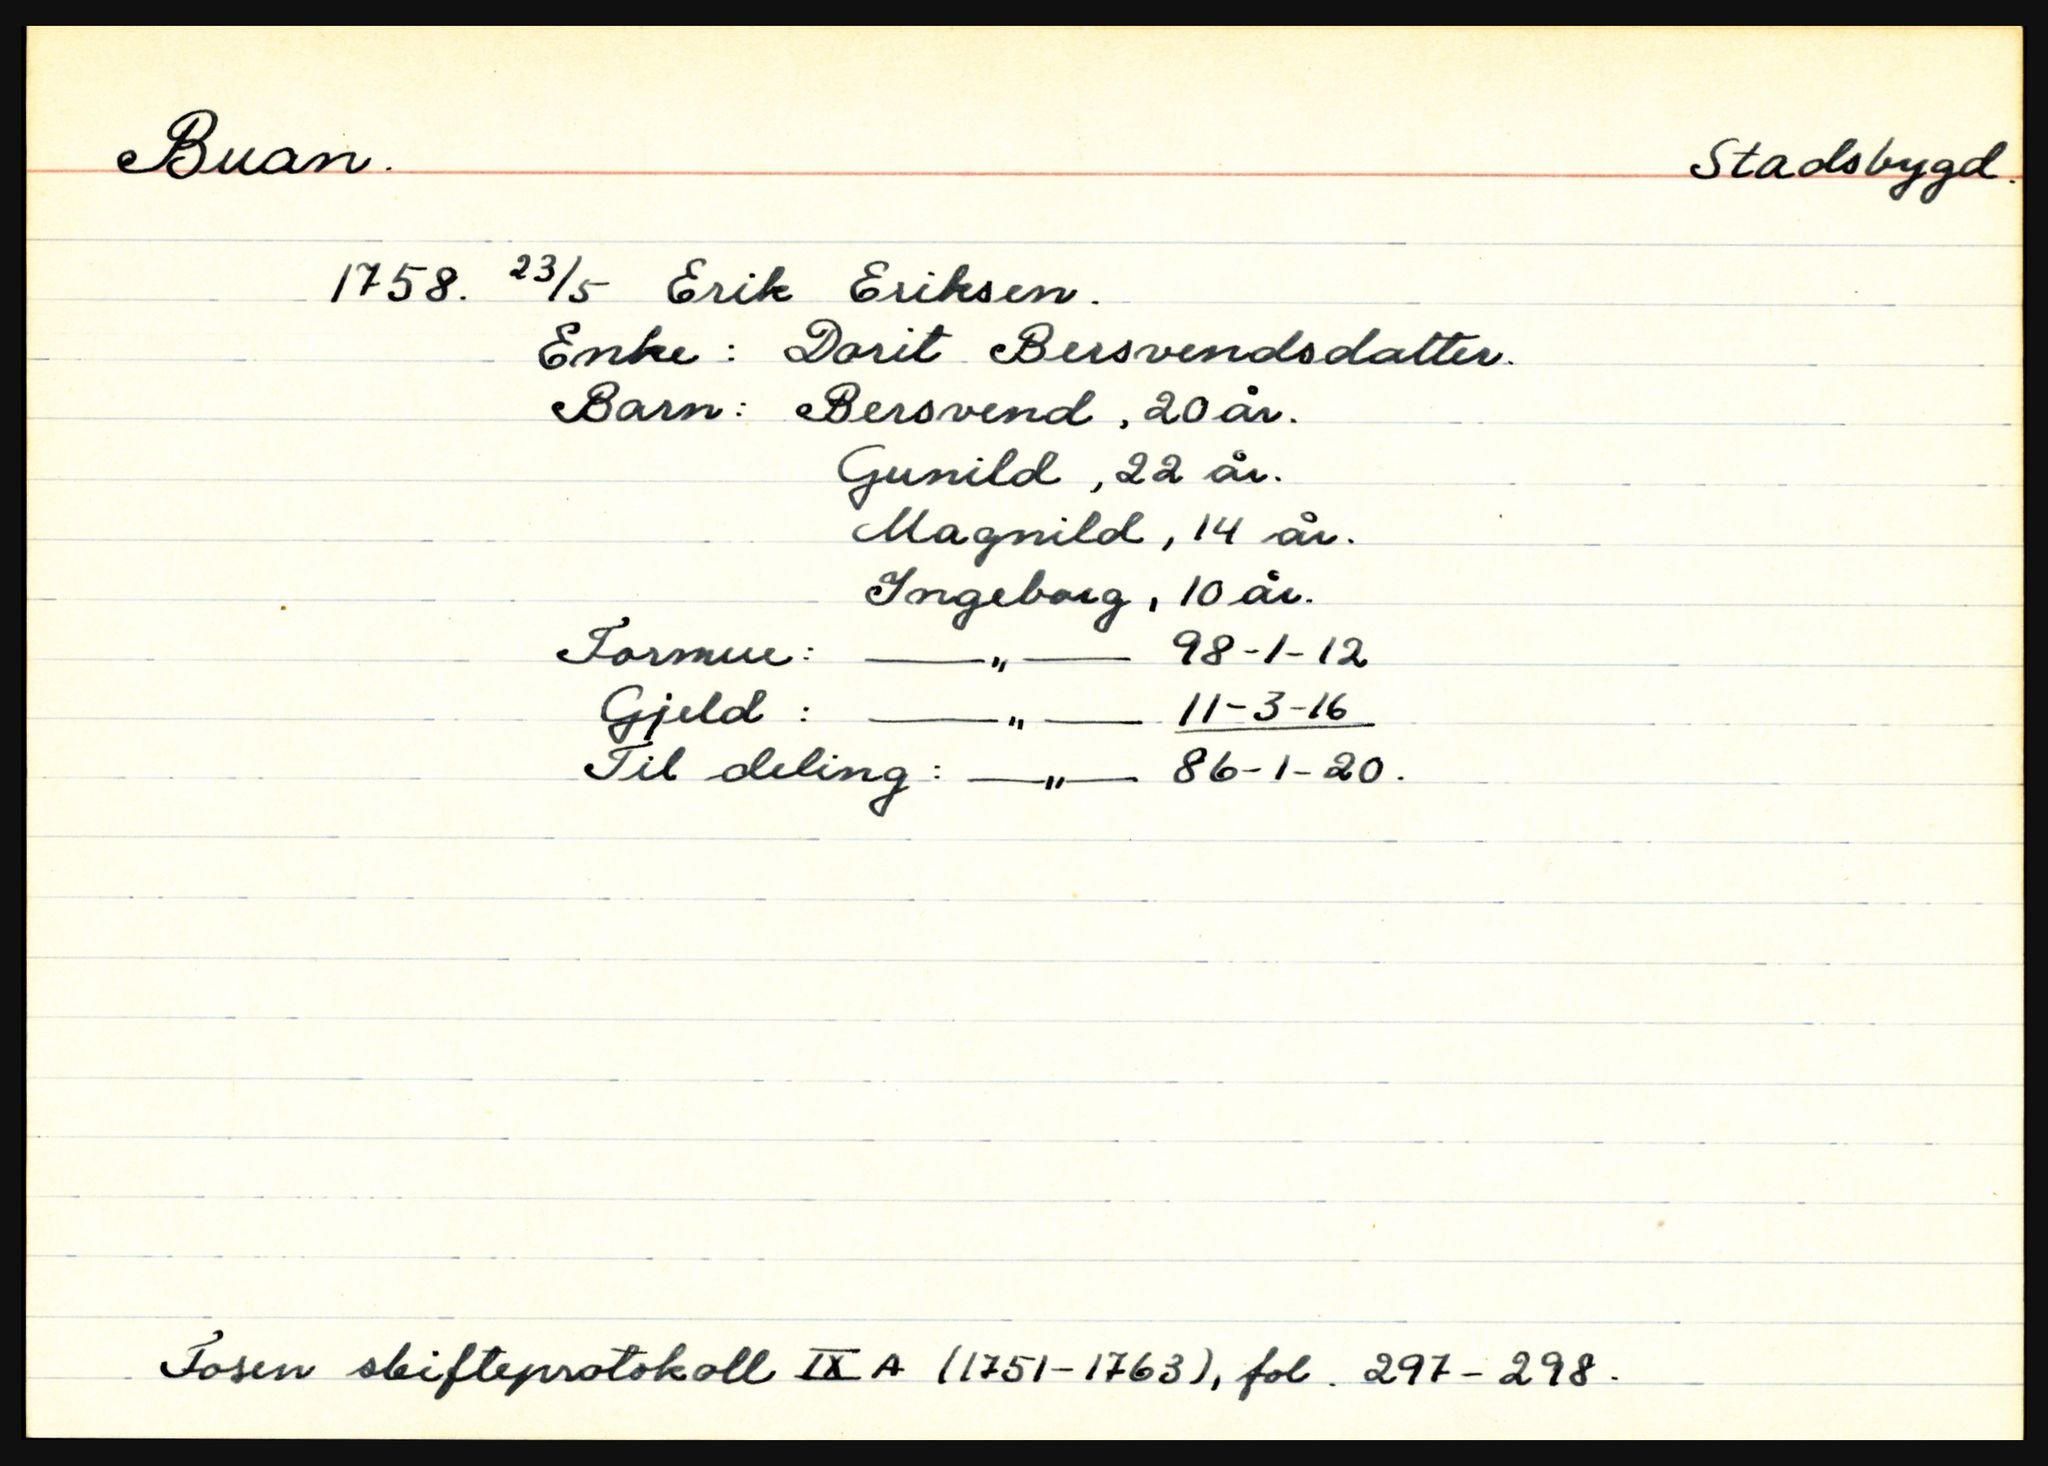 Buan. Stadsbygd.
1758. 23/5 Erik Eriksen.
Enke: Dorit Bersvendsdatter.
Barn: Bersvend, 20 år.
Gunild, 22 år.
Magnild, 14 år.
Ingeborg, 10 år.
Formue: —„— 98-1-12
Gjeld: —„— 11-3-16
Til deling: —„— 86-1-20.
Fosen skifteprotokoll IX A (1751-1763), fol. 297-298.